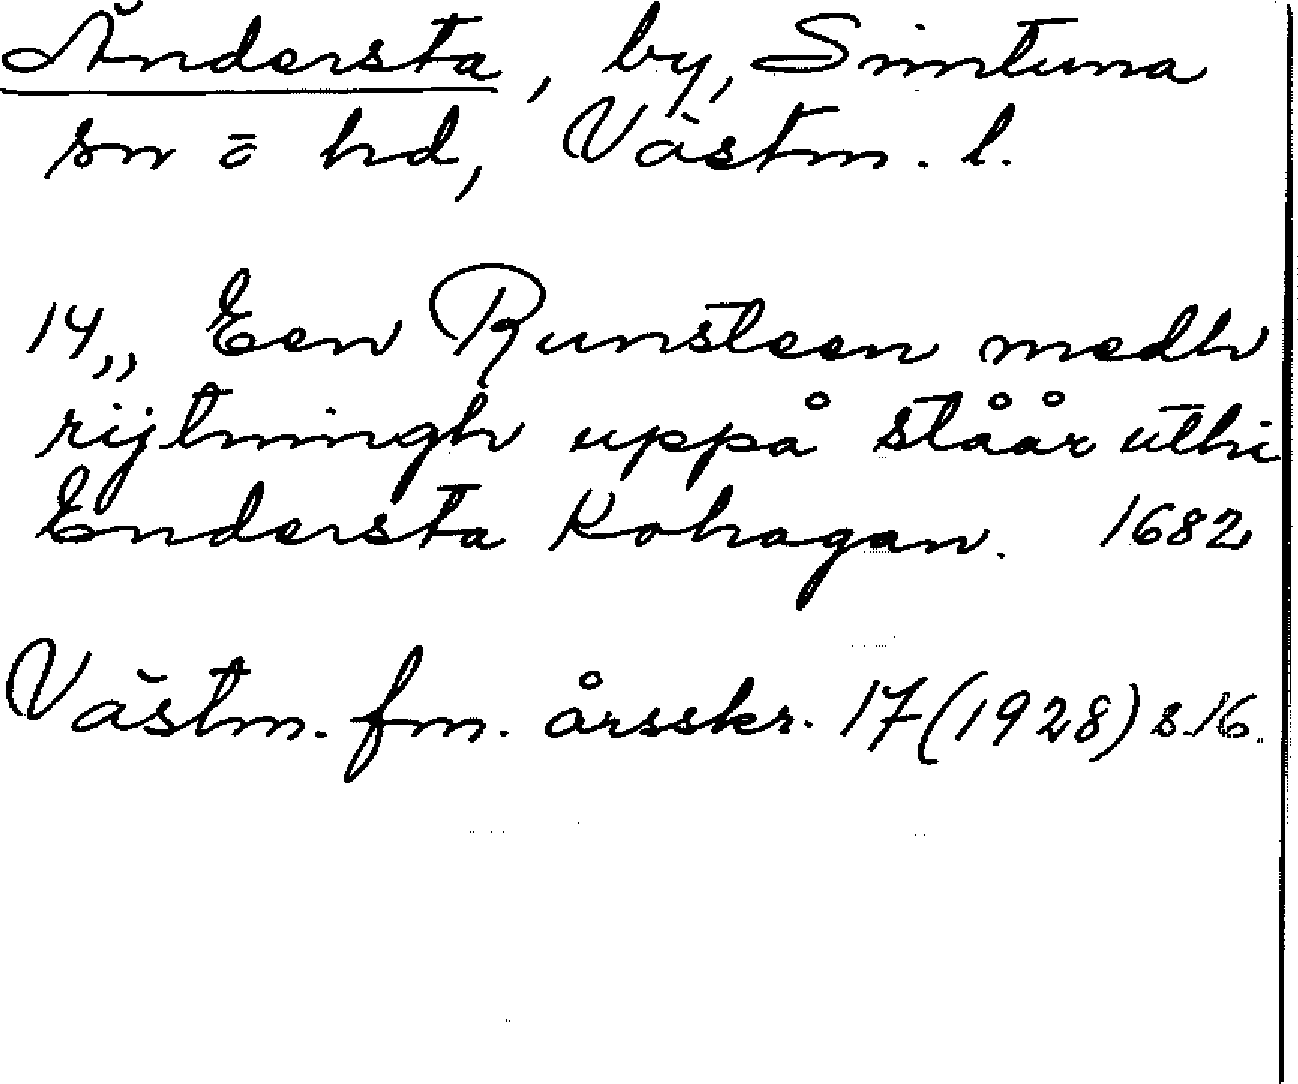 Ändersta, by, Simtuna
sn o hd, Västm. l.
14,, Een Runsteen medh
rijtningh uppå ståår uthi
Endersta Kohagan. 1682
Västm. fm. årsskr. 17 (1928) s. 16.